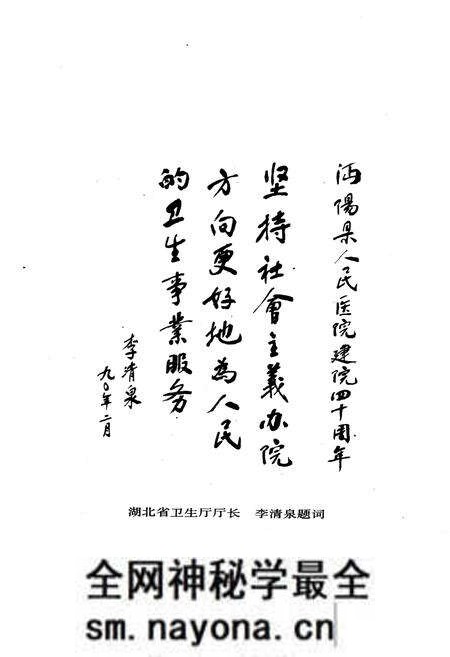 沔陽县人民医院建院四十周年
坚持社會主義办院
方向更好地為人民
的卫生事業服务
李清泉
九〇年二月
湖北省卫生厅厅长 李清泉题词
全网神秘学最全
sm.nayona.cn